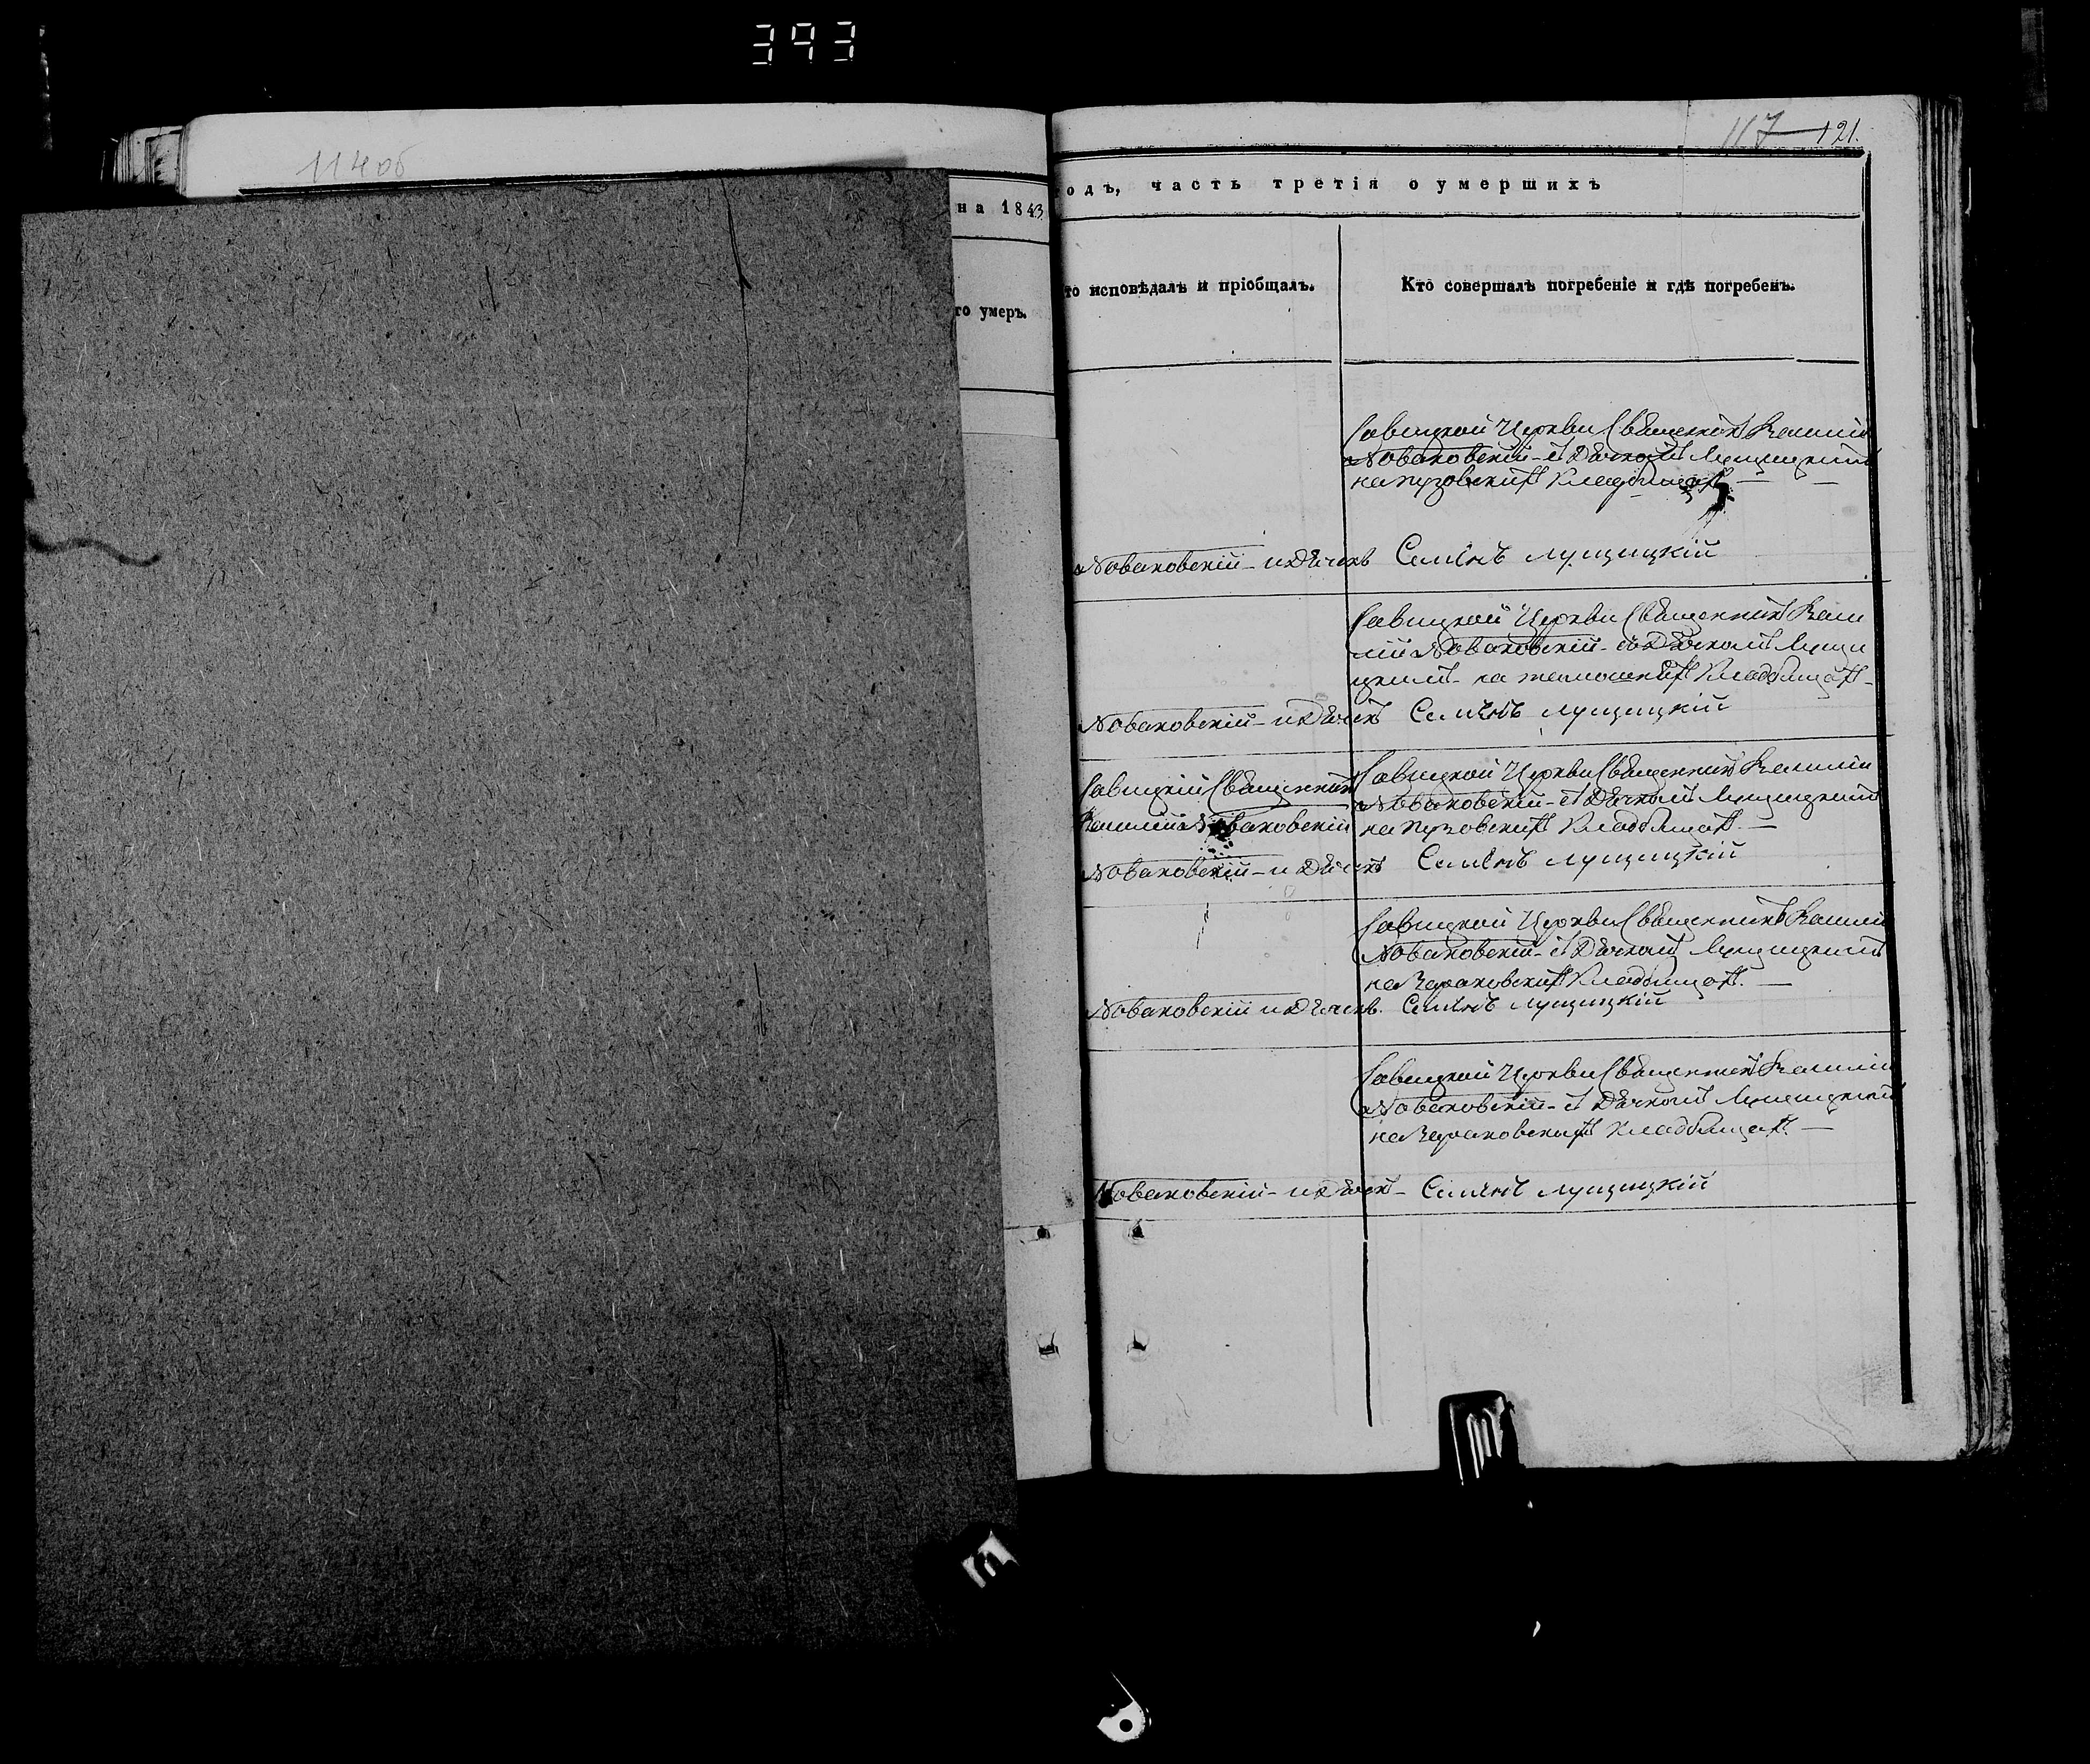 393
114об
117 121.
на 1843
одъ, часть третія о умершихъ
го умеръ.
то исповѣдалъ и пріобщалъ.
Кто совершалъ погребеніе и гдѣ погребенъ.
Савицкой Церкви Священникъ Василій
Новаковскій - съ Дьячкомъ Лущицкимъ
на Кладбищахъ —
Новаковскій - и Дьячекъ Семенъ Лущицкій
Савицкой Церкви Священникъ Васи
лій Новаковскій - съ Дьячкомъ Лущи
цкимъ - на Кладбищахъ -
Новаковскій - и Дьячекъ Семенъ Лущицкій
Савицкій Священникъ
Василій Новаковскій
Савицкой Церкви Священникъ Василій
Новаковскій - съ Дьячкомъ Лущицкимъ
на Кладбищахъ. —
Новаковскій - и Дьячекъ Семенъ Лущицкій
Савицкой Церкви Священникъ Василій
Новаковскій - съ Дьячкомъ Лущицкимъ
на Кладбищахъ. —
Новаковскій и Дьячекъ. Семенъ Лущицкій
Савицкой Церкви Священникъ Василій
Новаковскій - съ Дьячкомъ Лущицкимъ
на Кладбищахъ. —
Новаковскій - и Дьячекъ - Семенъ Лущицкій